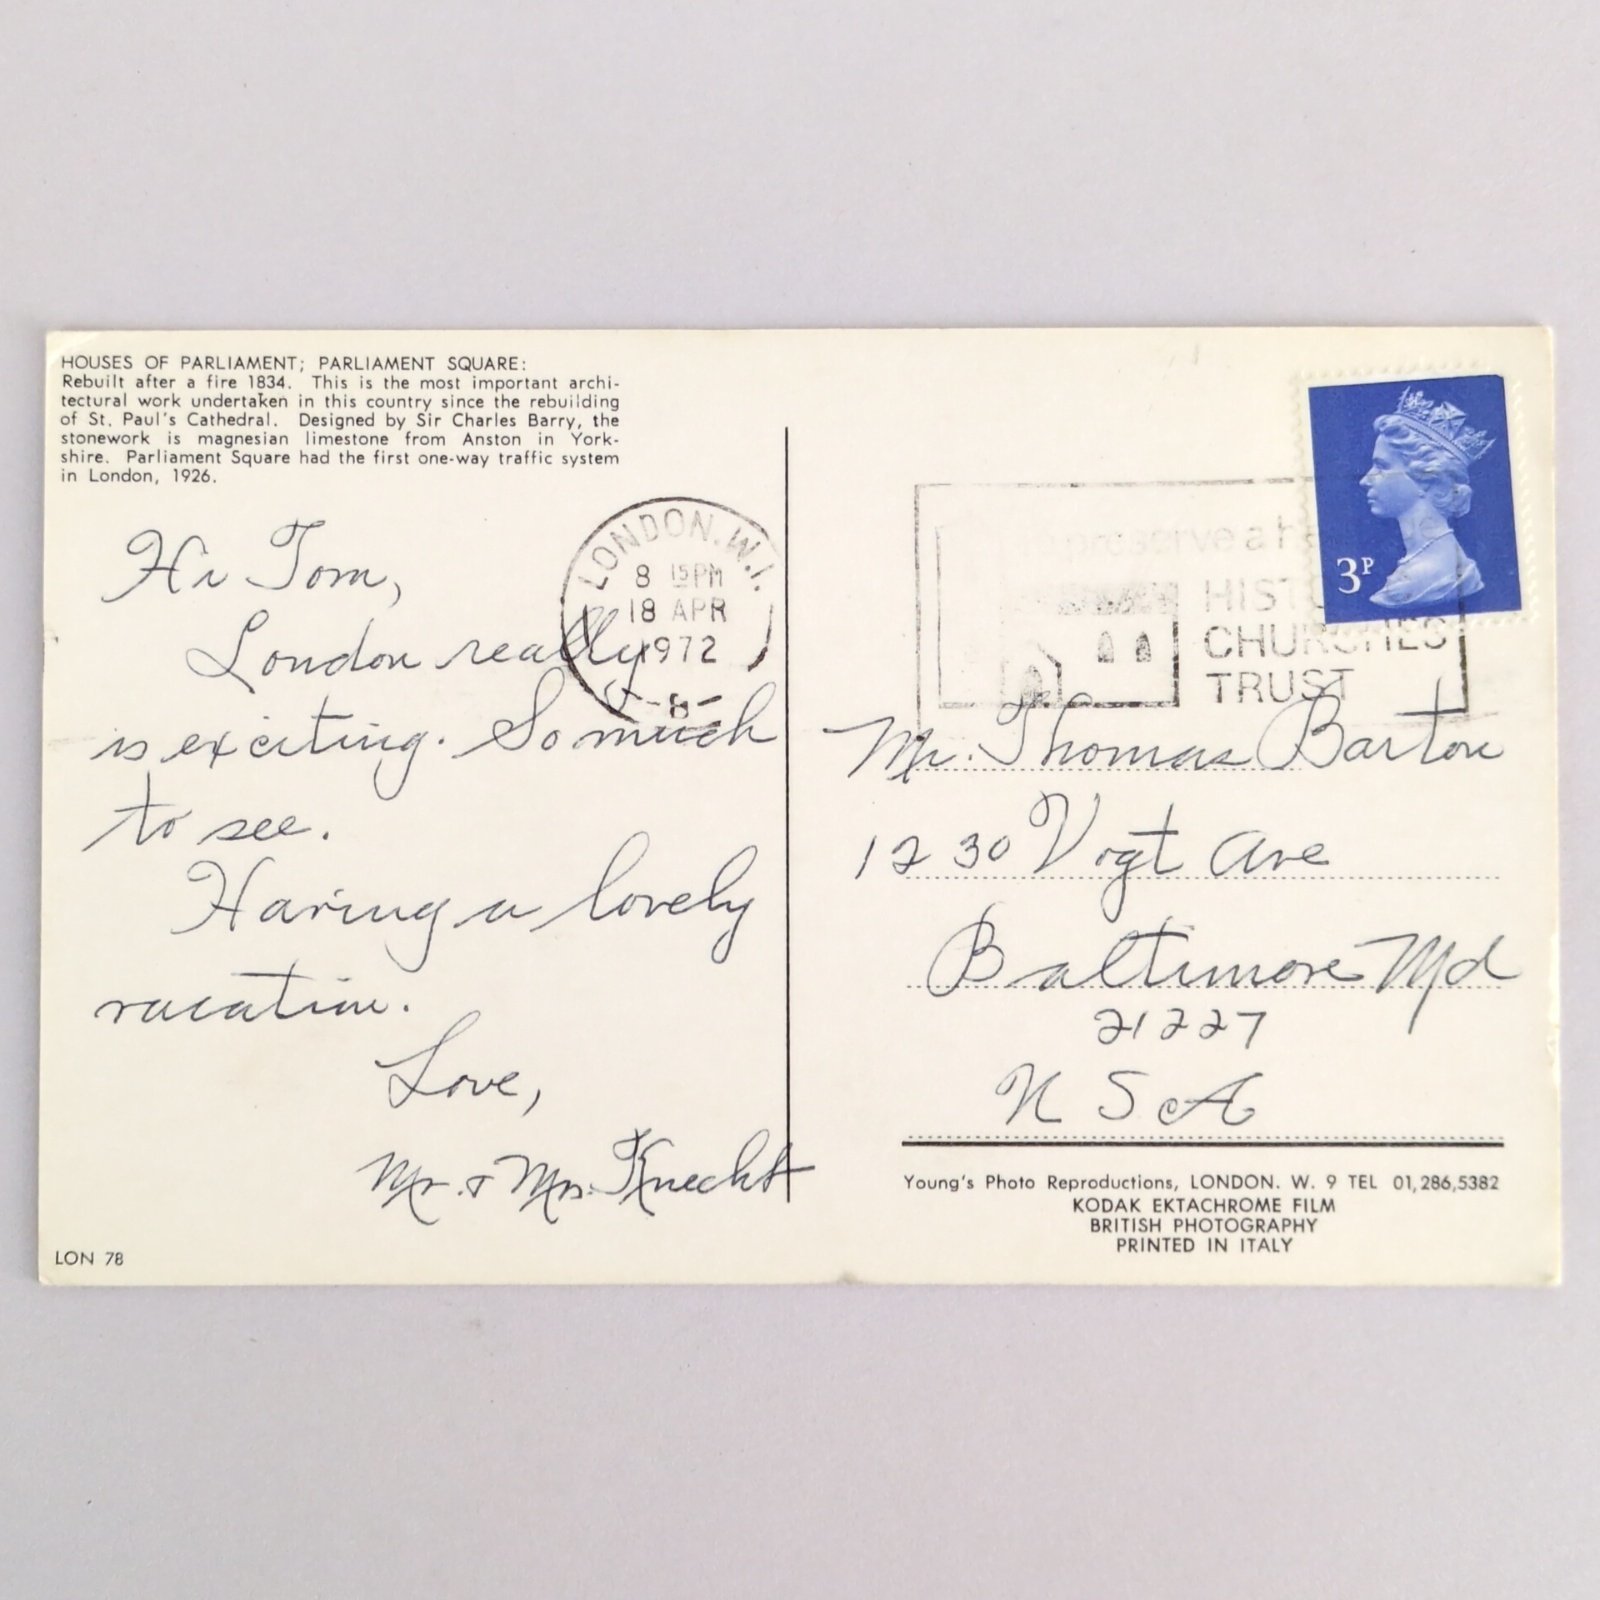 HOUSES OF PARLIAMENT; PARLIAMENT SQUARE:
Rebuilt after a fire 1834. This is the most important archi-
tectural work undertaken in this country since the rebuilding
of St. Paul's Cathedral. Designed by Sir Charles Barry, the
stonework is magnesian limestone from Anston in York-
shire. Parliament Square had the first one-way traffic system
in London, 1926.
Hi Tom,
London really
is exciting. So much
to see.
Having a lovely
vacation.
Love,
Mr. & Mrs. Knecht
LON 78
LONDON. W.1.
8 15 PM
18 APR
1972
-8-
preserve a
CHURCHES
TRUST
3P
Mr. Thomas Barton
1230 Vogt Ave
Baltimore Md
21227
USA
Young's Photo Reproductions, LONDON. W. 9 TEL 01,286,5382
KODAK EKTACHROME FILM
BRITISH PHOTOGRAPHY
PRINTED IN ITALY